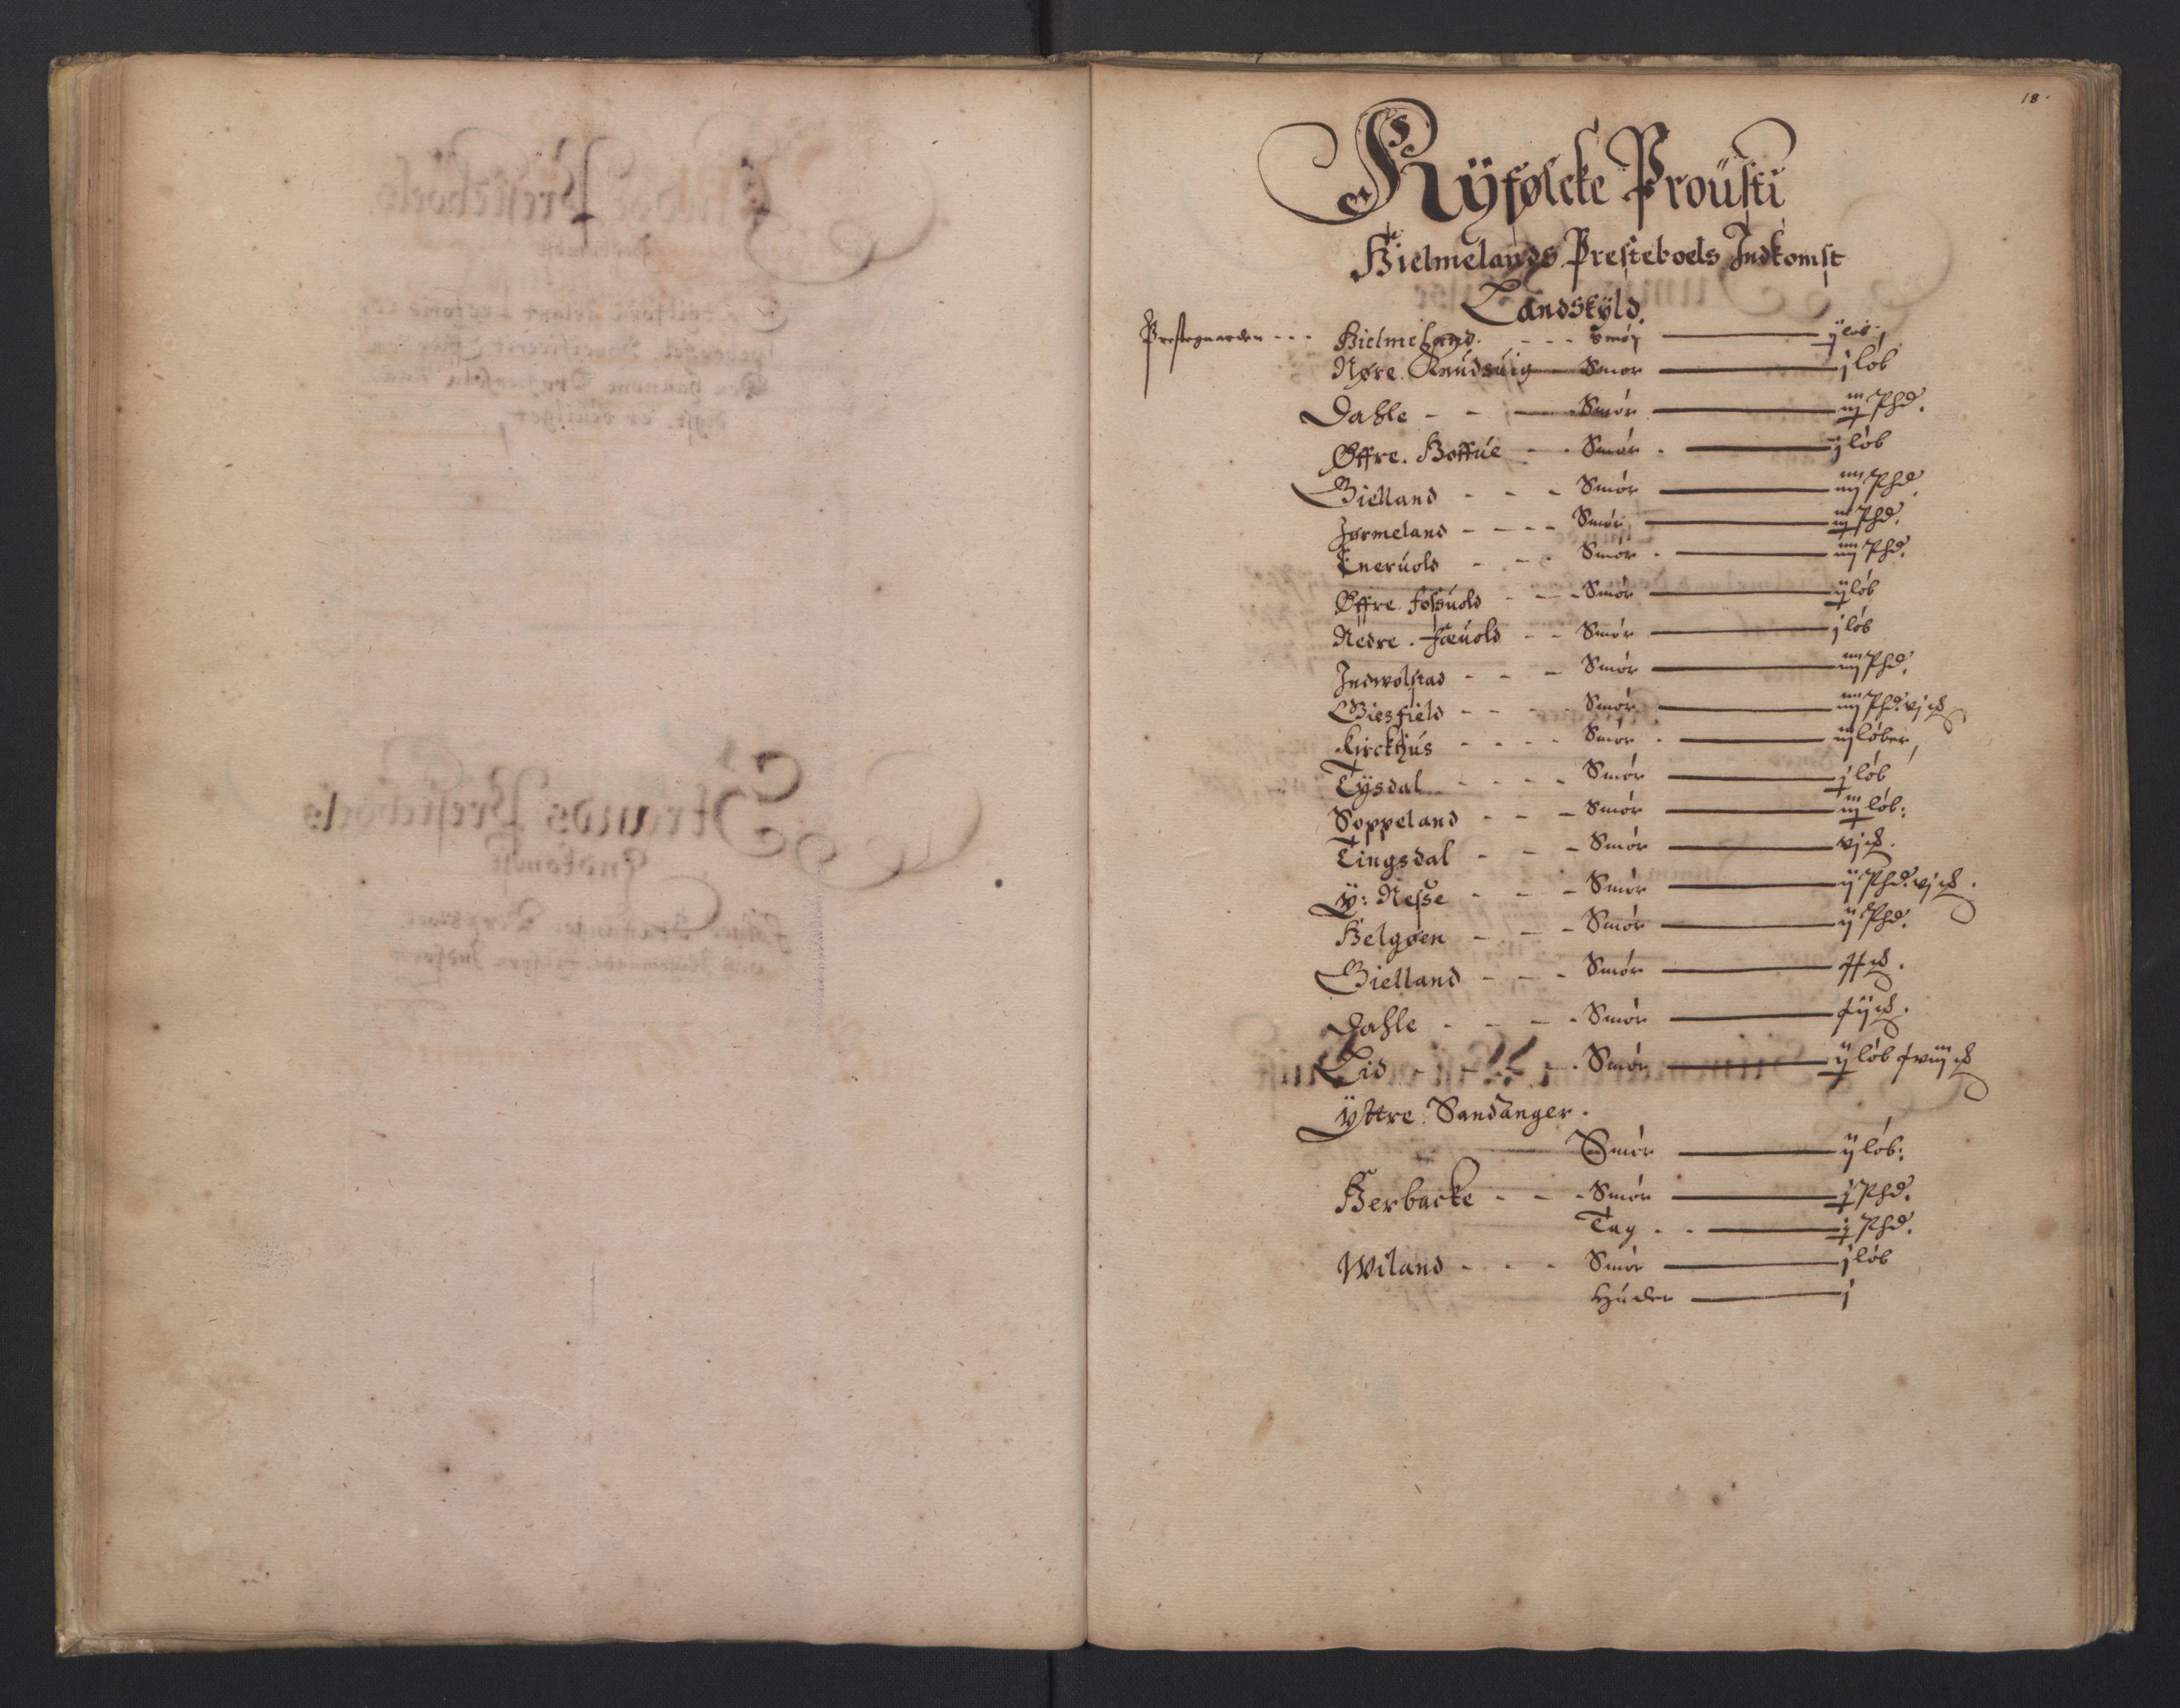 18.
Ryfølcke Prousti
Hielmelands Presteboels Indkomst
Landskyld.
Prestegaarden - - - Hielmeland. - - - Smør ij løb.
Nøre. Knudsuig Smør j løb
Dahle - - - Smør iij Phd.
Øffre. Hoffue - - Smør. j løb
Gielland - - - Smør iiij Phd.
Jørmeland - - - - Smør iij Phd.
Tueruold - - - Smør. iiij Phd.
Øffre. Fossuold - - - Smør ij løb
Nedre. Fæuold - - Smør j løb
Indwolstad - - - Smør iiij Phd.
Giesfield - - - - Smør. iiij Phd. vj
Kirckhus - - - - Smør. iij løber
Tysdal - - - - Smør j løb
Soppeland - - - Smør iij løb:
Tingsdal - - - Smør vj
Y: Nesse - - - Smør ij Phd. vj
Helgøen - - - Smør ij Phd.
Gielland - - - Smør
Dahle - - - - Smør
Eid - - - - Smør ij løb
Yttre. Sandanger.
Smør ij løb:
Herbacke - - - Smør j Phd.
Tag - - j Phd.
Wiland - - - Smør j løb
Huder j